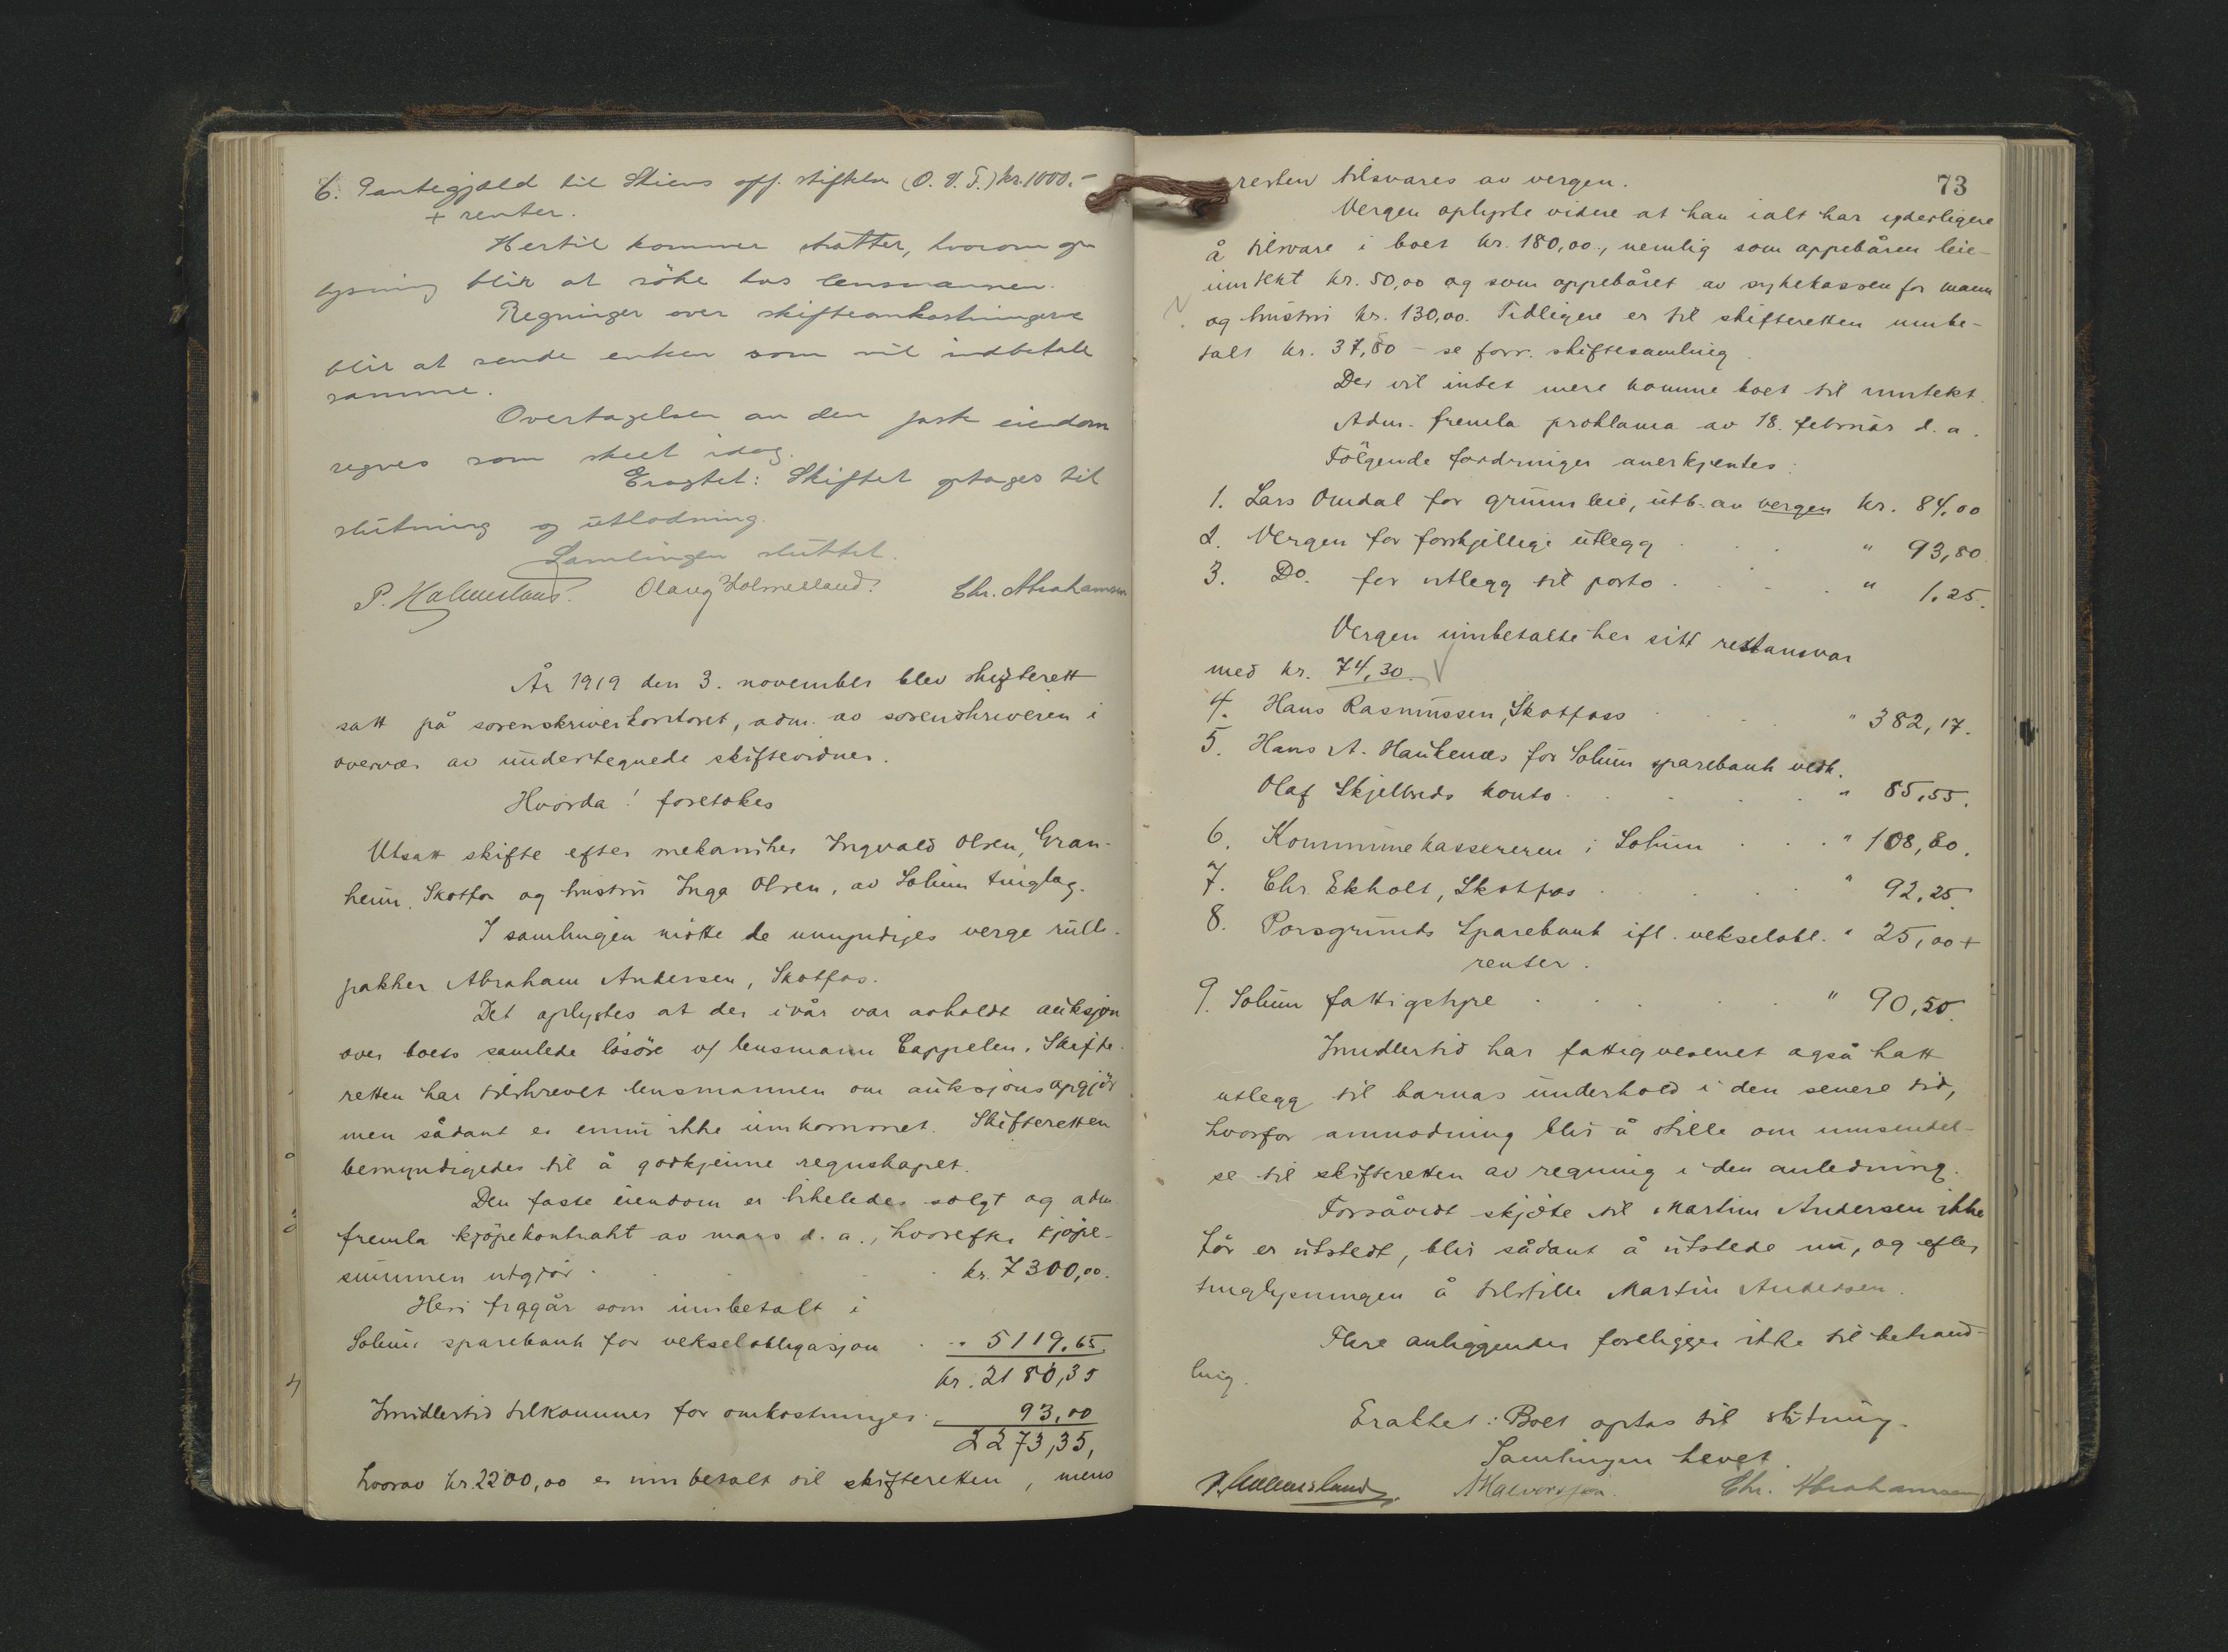 6. Pantegjæld til Skiens off. stiftelse (O. V. F.) kr. 1000.-
+ renter.
Hertil kommer skatter, hvorom op-
lysning blir at söke hos lensmannen.
Regninger over skifteomkostningerne
blir at sende enken som vil indbetale
samme.
Overtagelsen av den faste eiendom
regnes som skeet idag.
Eragtet: Skiftet optages til
slutning og utlodning.
Samlingen sluttet.
P. Holmesland. Olaug Holmesland. Chr. Abrahamsen
År 1919 den 3. november blev skifterett
satt på sorenskriverkontoret, adm. av sorenskriveren i
overvær av undertegnede skifteordner.
Hvorda! foretokes
Utsatt skifte efter mekaniker Ingvald Olsen, Gran-
heim, Skotfos og hustru Inga Olsen, av Solum tinglag.
I samlingen mötte de umyndiges verge rulle-
pakker Abraham Andersen, Skotfos.
Det oplystes at der ivår var avholdt auksjon
over boets samlede lösöre v/ lensmann Cappelen. Skifte-
retten har tilskrevet lensmannen om auksjonsopgjör
men sådant er ennu ikke innkommet. Skifteretten
bemyndigedes til å godkjenne regnskapet.
Den faste eiendom er likeledes solgt og adm.
fremla kjöpekontrakt av mars d. a., hvorefter kjöpe-
summen utgjör . . . . kr. 7300,00.
Heri fragår som innbetalt i
Solum sparebank for vekselobligasjon . " 5119,65.
kr. 2180,35
Imidlertid tilkommer for omkostninger " 93,00
2273,35,
hvorav kr. 2200,00 er innbetalt til skifteretten, mens
73
resten tilsvares av vergen.
Vergen oplyste videre at han ialt har yderligere
å tilsvare i boet kr. 180,00, nemlig som oppebåren leie-
inntekt kr. 50,00 og som oppebåret av sykekassen for mann
og hustru kr. 130,00. Tidligere er til skifteretten innbe-
talt kr. 37,80 - se forr. skiftesamling.
Der vil intet mere komme boet til inntekt.
Adm. fremla proklama av 18. februar d. a.
Fölgende fordringer anerkjentes:
1. Lars Omdal for grunnleie, utb. av vergen kr. 84,00
2. Vergen for forskjellige utlegg . . . " 93,80
3. Do. for utlegg til porto . . . " 1,25.
Vergen innbetalte her sitt restansvar
med kr. 74,30.
4. Hans Rasmussen, Skotfoss . . . " 382,17.
5. Hans A. Haukenæs for Solum sparebank vedk.
Olaf Skjelbreds konto . . . . " 85,55.
6. Kommunekassereren i Solum . . . " 108,80.
7. Chr. Ekholt, Skotfos . . . " 92,25.
8. Porsgrunds Sparebank ifl. vekselobl. " 25,00 +
renter.
9. Solum fattigstyre . . . . . " 90,50.
Imidlertid har fattigvesenet også hatt
utlegg til barnas underhold i den senere tid,
hvorfor anmodning blir å stille om innsendel-
se til skifteretten av regning i den anledning.
Forsåvidt skjöte til Martin Andersen ikke
för er utstedt, blir sådant å utstede nu, og efter
tinglysningen å tilstille Martin Andersen.
Flere anliggender foreligger ikke til behand-
ling.
Eraktet: Boet optas til slutning.
Samlingen hevet.
P. Holmesland A Halvorsen. Chr. Abrahamsen